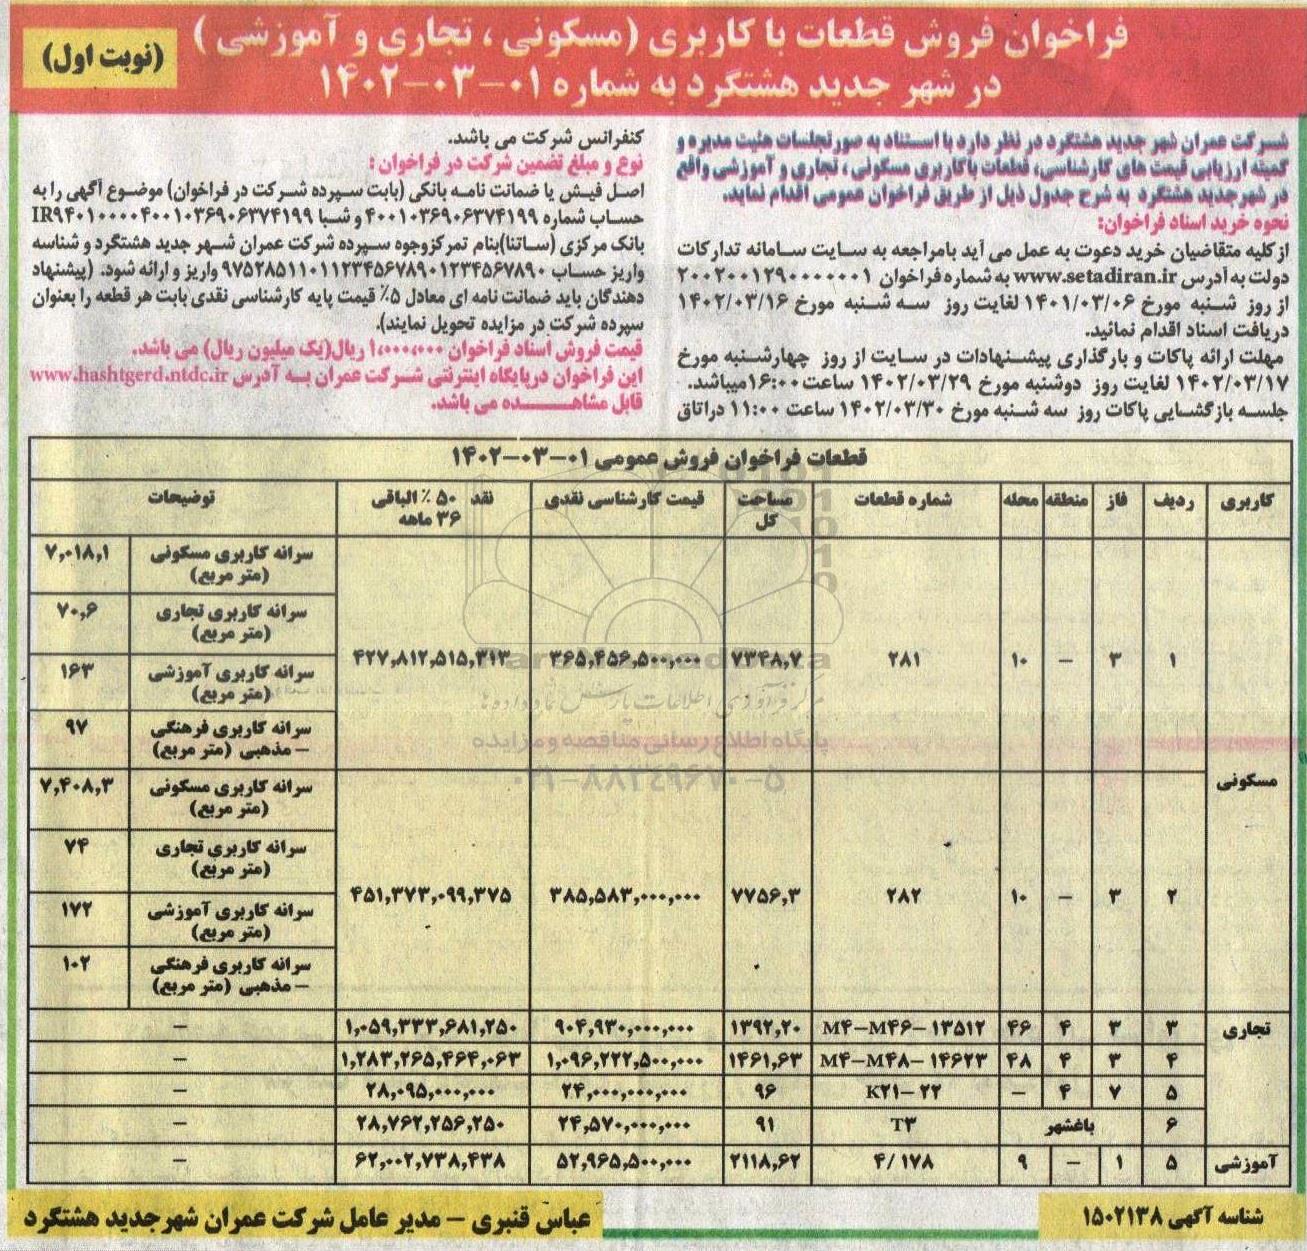 فراخوان فروش قطعات با کاربری (مسکونی ، تجاری و آموزشی )
در شهر جدید هشتگرد به شماره ۰۱-۰۳-۱۴۰۲
(نوبت اول)
شرکت عمران شهر جدید هشتگرد در نظر دارد با استناد به صورتجلسات هئیت مدیره و
کمیته ارزیابی قیمت های کارشناسی، قطعات باکاربری مسکونی ، تجاری و آموزشی واقع
در شهرجدید هشتگرد به شرح جدول ذیل از طریق فراخوان عمومی اقدام نماید.
نحوه خرید اسناد فراخوان:
از کلیه متقاضیان خرید دعوت به عمل می آید بامراجعه به سایت سامانه تدارکات
دولت به آدرس www.setadiran.ir به شماره فراخوان ۲۰۰۲۰۰۱۲۹۰۰۰۰۰۰۱
از روز شنبه مورخ ۱۴۰۱/۰۳/۰۶ لغایت روز سه شنبه مورخ ۱۴۰۲/۰۳/۱۶
دریافت اسناد اقدام نمائید.
مهلت ارائه پاکات و بارگذاری پیشنهادات در سایت از روز چهارشنبه مورخ
۱۴۰۲/۰۳/۱۷ لغایت روز دوشنبه مورخ ۱۴۰۲/۰۳/۲۹ ساعت ۱۶:۰۰میباشد.
جلسه بازگشایی پاکات روز سه شنبه مورخ ۱۴۰۲/۰۳/۳۰ ساعت ۱۱:۰۰ دراتاق
کنفرانس شرکت می باشد.
نوع و مبلغ تضمین شرکت در فراخوان :
اصل فیش یا ضمانت نامه بانکی (بابت سپرده شرکت در فراخوان) موضوع آگهی را به
حساب شماره ۴۰۰۱۰۳۶۹۰۶۳۷۴۱۹۹ و شبا IR۹۴۰۱۰۰۰۰۴۰۰۱۰۳۶۹۰۶۳۷۴۱۹۹
بانک مرکزی (ساتنا)بنام تمرکزوجوه سپرده شرکت عمران شهر جدید هشتگرد و شناسه
واریز حساب ۹۷۵۲۸۵۱۱۰۱۱۲۳۴۵۶۷۸۹۰۱۲۳۴۵۶۷۸۹۰ واریز و ارائه شود. (پیشنهاد
دهندگان باید ضمانت نامه ای معادل ۵٪ قیمت پایه کارشناسی نقدی بابت هر قطعه را بعنوان
سپرده شرکت در مزایده تحویل نمایند).
قیمت فروش اسناد فراخوان ۱,۰۰۰,۰۰۰ ریال(یک میلیون ریال) می باشد.
این فراخوان درپایگاه اینترنتی شرکت عمران به آدرس www.hashtgerd.ntdc.ir
قابل مشاهده می باشد.
قطعات فراخوان فروش عمومی ۰۱-۰۳-۱۴۰۲
کاربری ردیف فاز منطقه محله شماره قطعات مساحت کل قیمت کارشناسی نقدی نقد ۵۰ ٪ الباقی ۳۶ ماهه توضیحات
مسکونی
۱ ۳ - ۱۰ ۲۸۱ ۷۳۴۸,۷ ۳۶۵,۴۵۶,۵۰۰,۰۰۰ ۴۲۷,۸۱۲,۵۱۵,۳۱۳
سرانه کاربری مسکونی (متر مربع) ۷,۰۱۸,۱
سرانه کاربری تجاری (متر مربع) ۷۰,۶
سرانه کاربری آموزشی (متر مربع) ۱۶۳
سرانه کاربری فرهنگی - مذهبی (متر مربع) ۹۷
۲ ۳ - ۱۰ ۲۸۲ ۷۷۵۶,۳ ۳۸۵,۵۸۳,۰۰۰,۰۰۰ ۴۵۱,۳۷۳,۰۹۹,۳۷۵
سرانه کاربری مسکونی (متر مربع) ۷,۴۰۸,۳
سرانه کاربری تجاری (متر مربع) ۷۴
سرانه کاربری آموزشی (متر مربع) ۱۷۲
سرانه کاربری فرهنگی - مذهبی (متر مربع) ۱۰۲
تجاری
۳ ۳ ۴ ۴۶ M۴-M۴۶-۱۳۵۱۲ ۱۳۹۲,۲۰ ۹۰۴,۹۳۰,۰۰۰,۰۰۰ ۱,۰۵۹,۳۳۳,۶۸۱,۲۵۰ -
۴ ۳ ۴ ۴۸ M۴-M۴۸-۱۴۶۲۳ ۱۴۶۱,۶۳ ۱,۰۹۶,۲۲۲,۵۰۰,۰۰۰ ۱,۲۸۳,۲۶۵,۴۶۴,۰۶۳ -
۵ ۷ ۴ - K۲۱-۲۲ ۹۶ ۲۴,۰۰۰,۰۰۰,۰۰۰ ۲۸,۰۹۵,۰۰۰,۰۰۰ -
۶ باغشهر T۳ ۹۱ ۲۴,۵۷۰,۰۰۰,۰۰۰ ۲۸,۷۶۲,۲۵۶,۲۵۰ -
آموزشی ۵ ۱ - ۹ ۴/۱۷۸ ۲۱۱۸,۶۲ ۵۲,۹۶۵,۵۰۰,۰۰۰ ۶۲,۰۰۲,۷۳۸,۴۳۸ -
پایگاه اطلاع رسانی مناقصه و مزایده
۰۲۱-۸۸۳۴۹۶۷۰-۵
شناسه آگهی ۱۵۰۲۱۳۸
عباس قنبری - مدیر عامل شرکت عمران شهرجدید هشتگرد